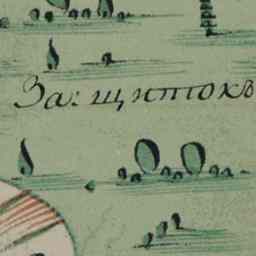 За: щитокъ